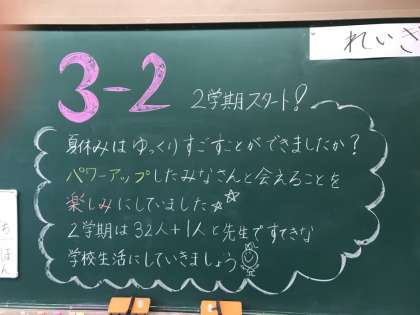 3-2
2学期スタート!
れいぎ
夏休みはゆっくりすごすことができましたか?
パワーアップしたみなさんと会えることを
楽しみにしていました☆☆
2学期は32人+1人と先生ですてきな
学校生活にしていきましょう